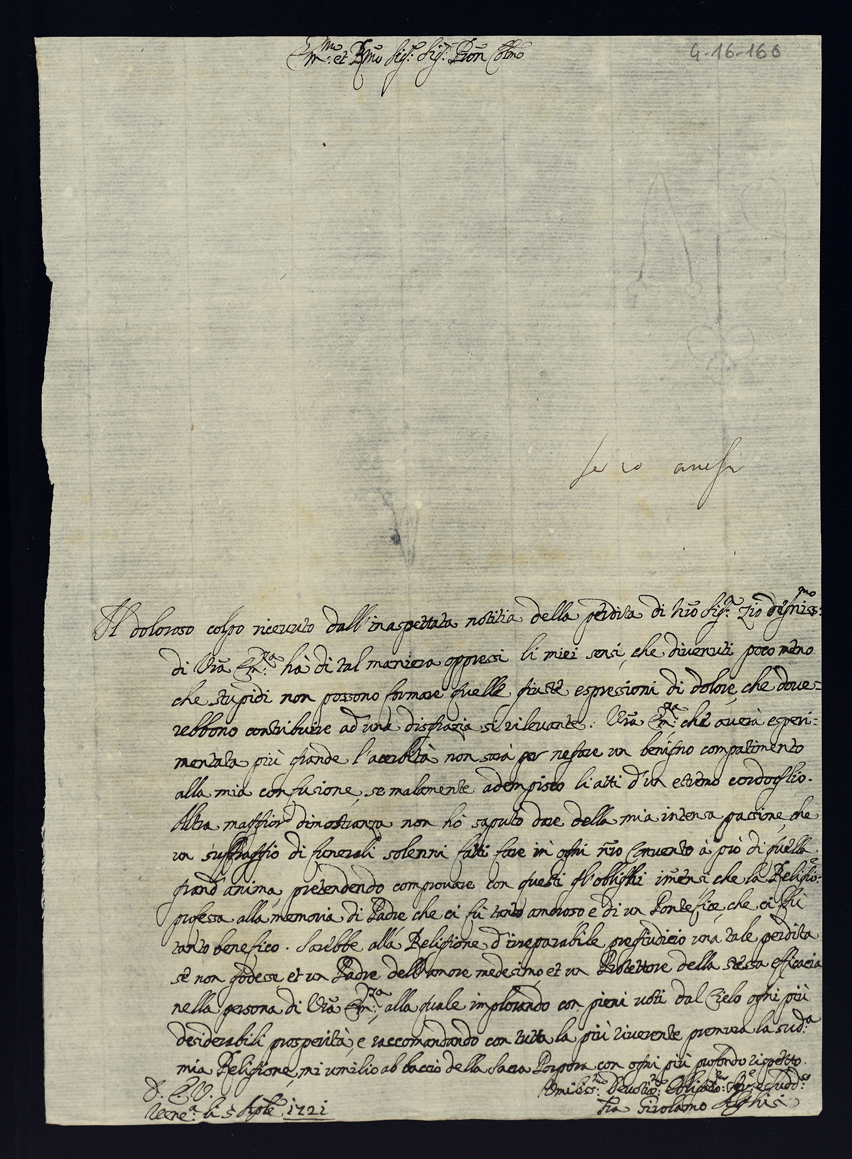 Em.mo et R.mo Sig.r Sig.r Pron Col.mo
G-16-166
Se io avessi
Il doloroso colpo ricevuto dall'inaspettata notitia della perdita di N'ro Sig.r Zio degniss:mo
di V'ra Em.za ha di tal maniera oppressi li miei sensi, che divenuti poco meno
che stupidi non possono formare quelle giuste espressioni di dolore, che dove=
rebbono contribuire ad una disgrazia si rilevante. V'ra Em.za che averà esperi:
mentata più grande l'acerbità non sarà per negare un benigno compatimento
alla mia confusione, se malamente adempisco li atti d'un estremo cordoglio.
Altra maggior dimostranza non hò saputo dare della mia intensa passione, che
un suffraggio di funerali solenni fatti fare in ogni n'ro Convento à prò di quella
grand'anima, pretendendo comprovare con questi gl'oblighi im'ensi che la Religio:
professa alla memoria di Padre che ci fù tanto amoroso e di un Pontefice, che ci fù
tanto benefico. Sarebbe alla Religione d'irreparabile pregiudicio una tale perdita
se non godesse et un Padre dell'amore medesimo, et un Protettore della stessa efficacia
nella persona di V'ra Em.za, alla quale implorando con pieni voti dal Cielo ogni più
desiderabili prosperità, e raccomandando con tutta la più riverente premura la sud.a
mia Religione, mi umilio al baccio della Sacra Porpora con ogni più profondo rispetto.
D. E. V.
Vene.a li 5 Aple 1721
Umiliss:mo Devotis:mo Obligatis:mo Ser.e e Sudd.o
Fra Girolamo Asghisi